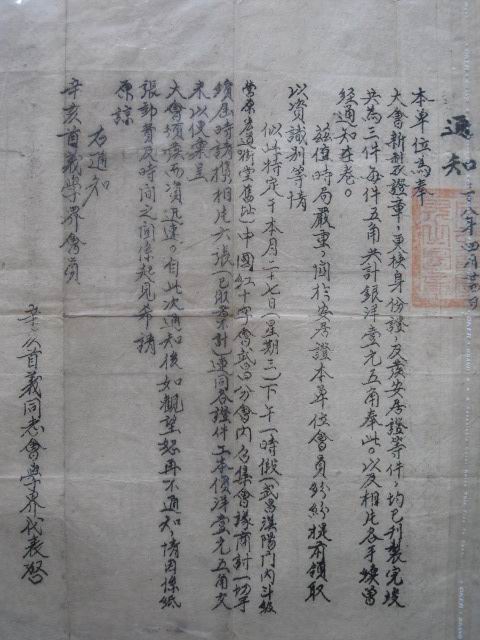 通知
三八年四月廿四日
本單位為奉
大會新制證章，更換身份證，及發安居證等件，均已刊製完竣
共為三件每件五角共計銀洋壹元五角奉此。以及相片各手續曾
經通知在卷。
茲值時局嚴重，關於安居證本單位會員紛紛提前領取
以資識別等情
似此特定于本月二十七日（星期三）下午一時假（武昌漢陽門內斗級
營原 道衙堂舊址）中國紅十字會武昌分會內召集會議商討一切手
續屆時請攜相片六張（已收者不計）連同各證件工本俱洋壹元五角交
來以便彙呈
大會頒發而資迅速。自此次通知後如觀望恕再不通知情因係紙
張印費及時間之關係起見希請
原諒
右通知
辛亥首義學界會員
辛亥首義同志會學界代表啓